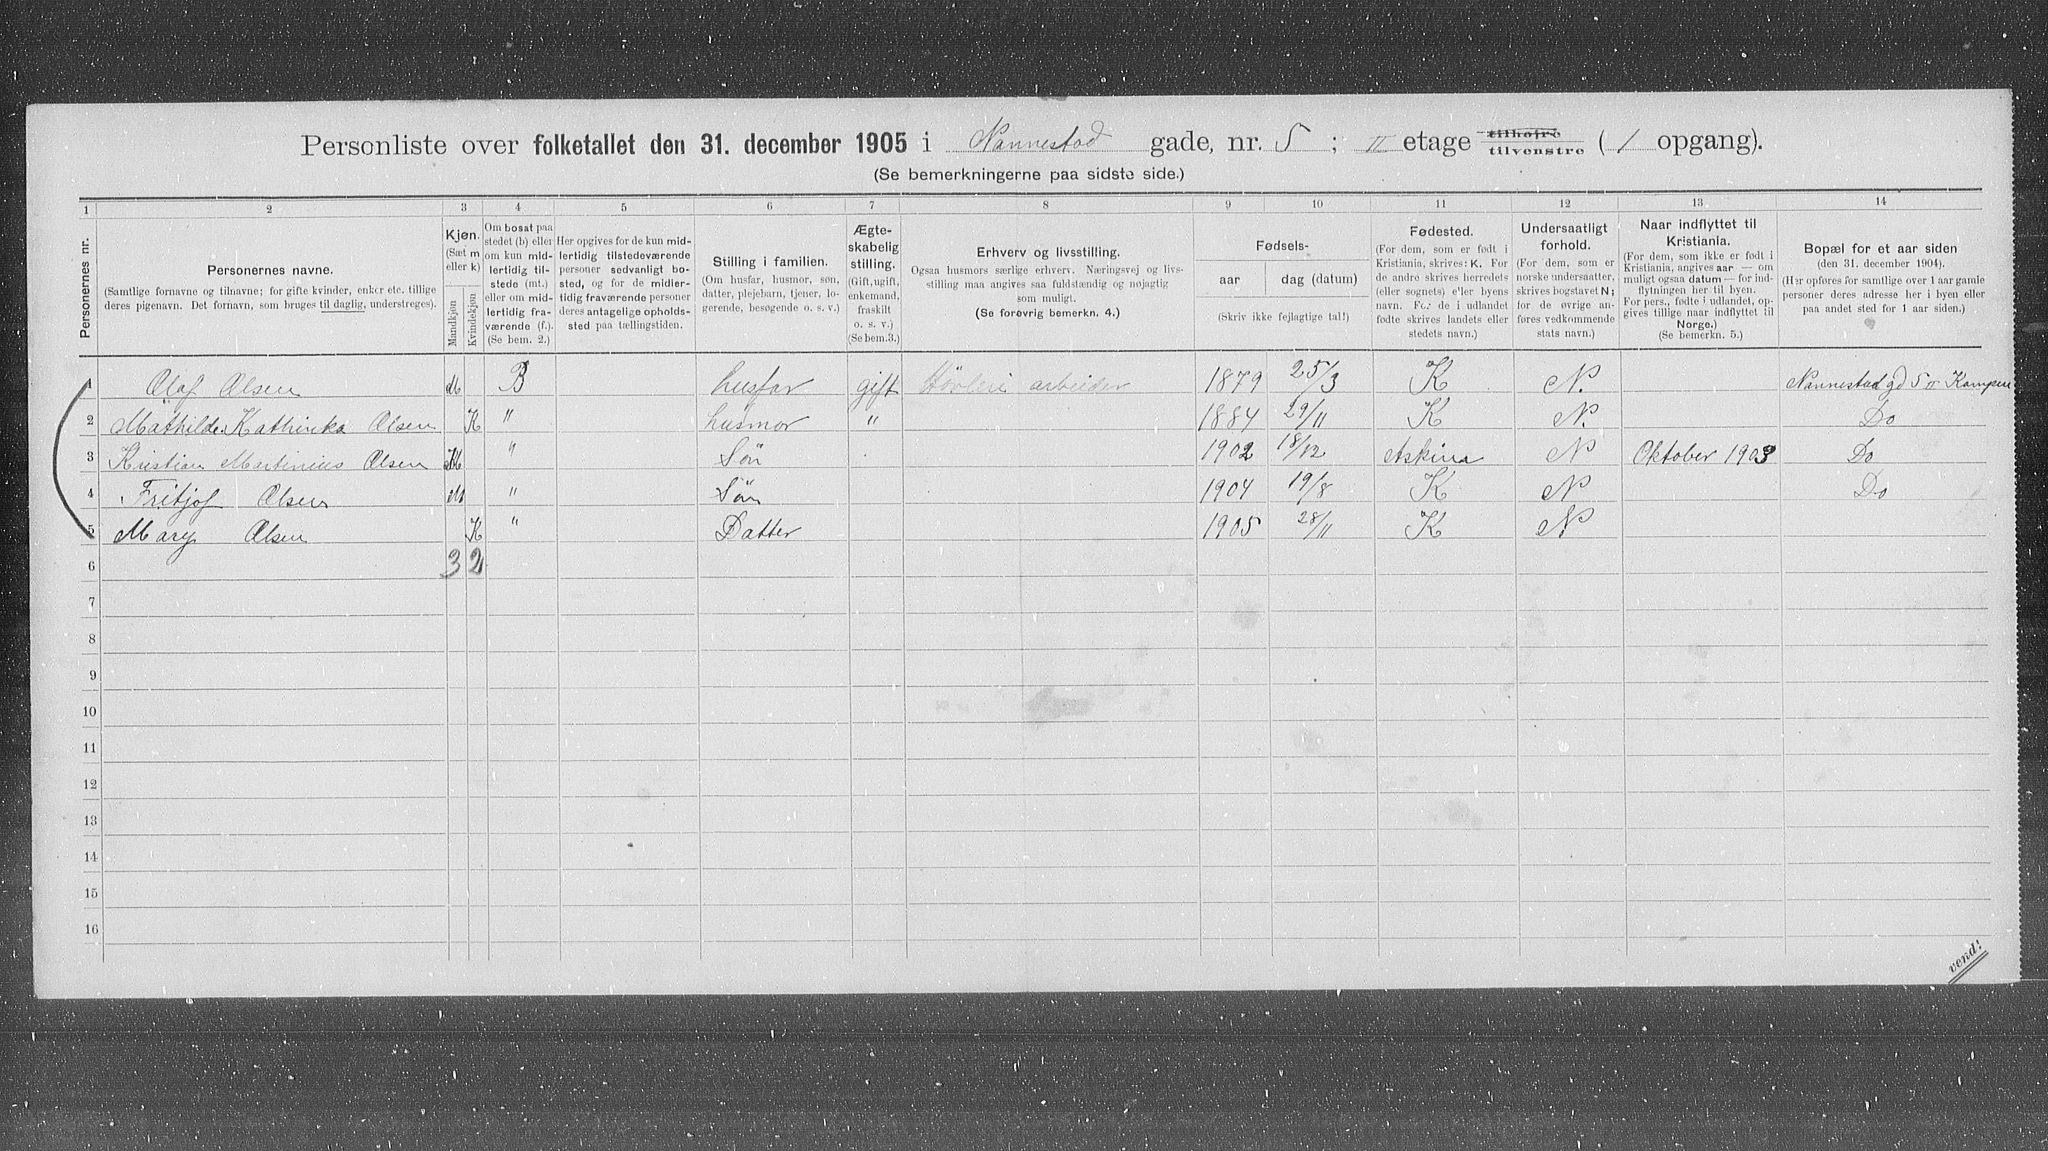 Personliste over folketallet den 31. december 1905 i Nannestad gade, nr. 5 ; II etage tilhøire tilvenstre ( 1 opgang).
(Se bemerkningerne paa sidste side.)
1 2 3 4 5 6 7 8 9 10 11 12 13 14
Personernes nr.
Personernes navne.
(Samtlige fornavne og tilnavne; for gifte kvinder, enker etc. tillige
deres pigenavn. Det fornavn, som bruges til daglig, understreges).
Kjøn.
(Sæt m
eller k)
Mandkjøn
Kvindekjøn
Om bosat paa
stedet (b) eller
om kun mid-
lertidig til-
stede (mt.)
eller om mid-
lertidig fra-
værende (f.).
(Se bem. 2.)
Her opgives for de kun mid-
lertidig tilstedeværende
personer sedvanligt bo-
sted, og for de midler-
tidig fraværende personer
deres antagelige opholds-
sted paa tællingstiden.
Stilling i familien.
(Om husfar, husmor, søn,
datter, plejebarn, tjener, lo-
gerende, besøgende o. s. v.)
Ægte-
skabelig
stilling.
(Gift, ugift,
enkemand,
fraskilt
o. s. v.)
(Se bem.3.)
Erhverv og livsstilling.
Ogsaa husmors særlige erhverv. Næringsvej og livs-
stilling maa angives saa fuldstændig og nøjagtig
som muligt.
(Se forøvrig bemerkn. 4.)
Fødsels-
aar dag (datum)
(Skriv ikke fejlagtige tal!)
Fødested.
(For dem, som er født i
Kristiania, skrives: K. For
de andre skrives herredets
(eller sognets) eller byens
navn. For de i udlandet
fødte skrives landets eller
stedets navn.)
Undersaatligt
forhold.
(For dem, som er
norske undersaatter,
skrives bogstavet N;
for de øvrige an-
føres vedkommende
stats navn.)
Naar indflyttet til
Kristiania.
(For dem, som ikke er født i
Kristiania, angives aar — om
muligt ogsaa datum — for ind-
flytningen her til byen.
For pers., fødte i udlandet, op-
gives tillige naar indflyttet til
Norge.)
(Se bemerkn. 5.)
Bopæl for et aar siden
(den 31. december 1904).
(Her opføres for samtlige over 1 aar gamle
personer deres adresse her i byen eller
paa andet sted for 1 aar siden.)
1 Olaf Olsen M B husfar gift Høvleri arbeider 1879 25/3 K N. Nannestad gd 5 II Kampen
2 Mathilde Kathinka Olsen K " husmor " 1884 29/11 K N. Do
3 Kristian Martinius Olsen M " Søn 1902 18/12 Askim N Oktober 1903 Do
4 Fritjof Olsen M " Søn 1904 19/8 K N Do
5 Mary Olsen K " Datter 1905 28/11 K N
6 3 2
7
8
9
10
11
12
13
14
15
16
vend!